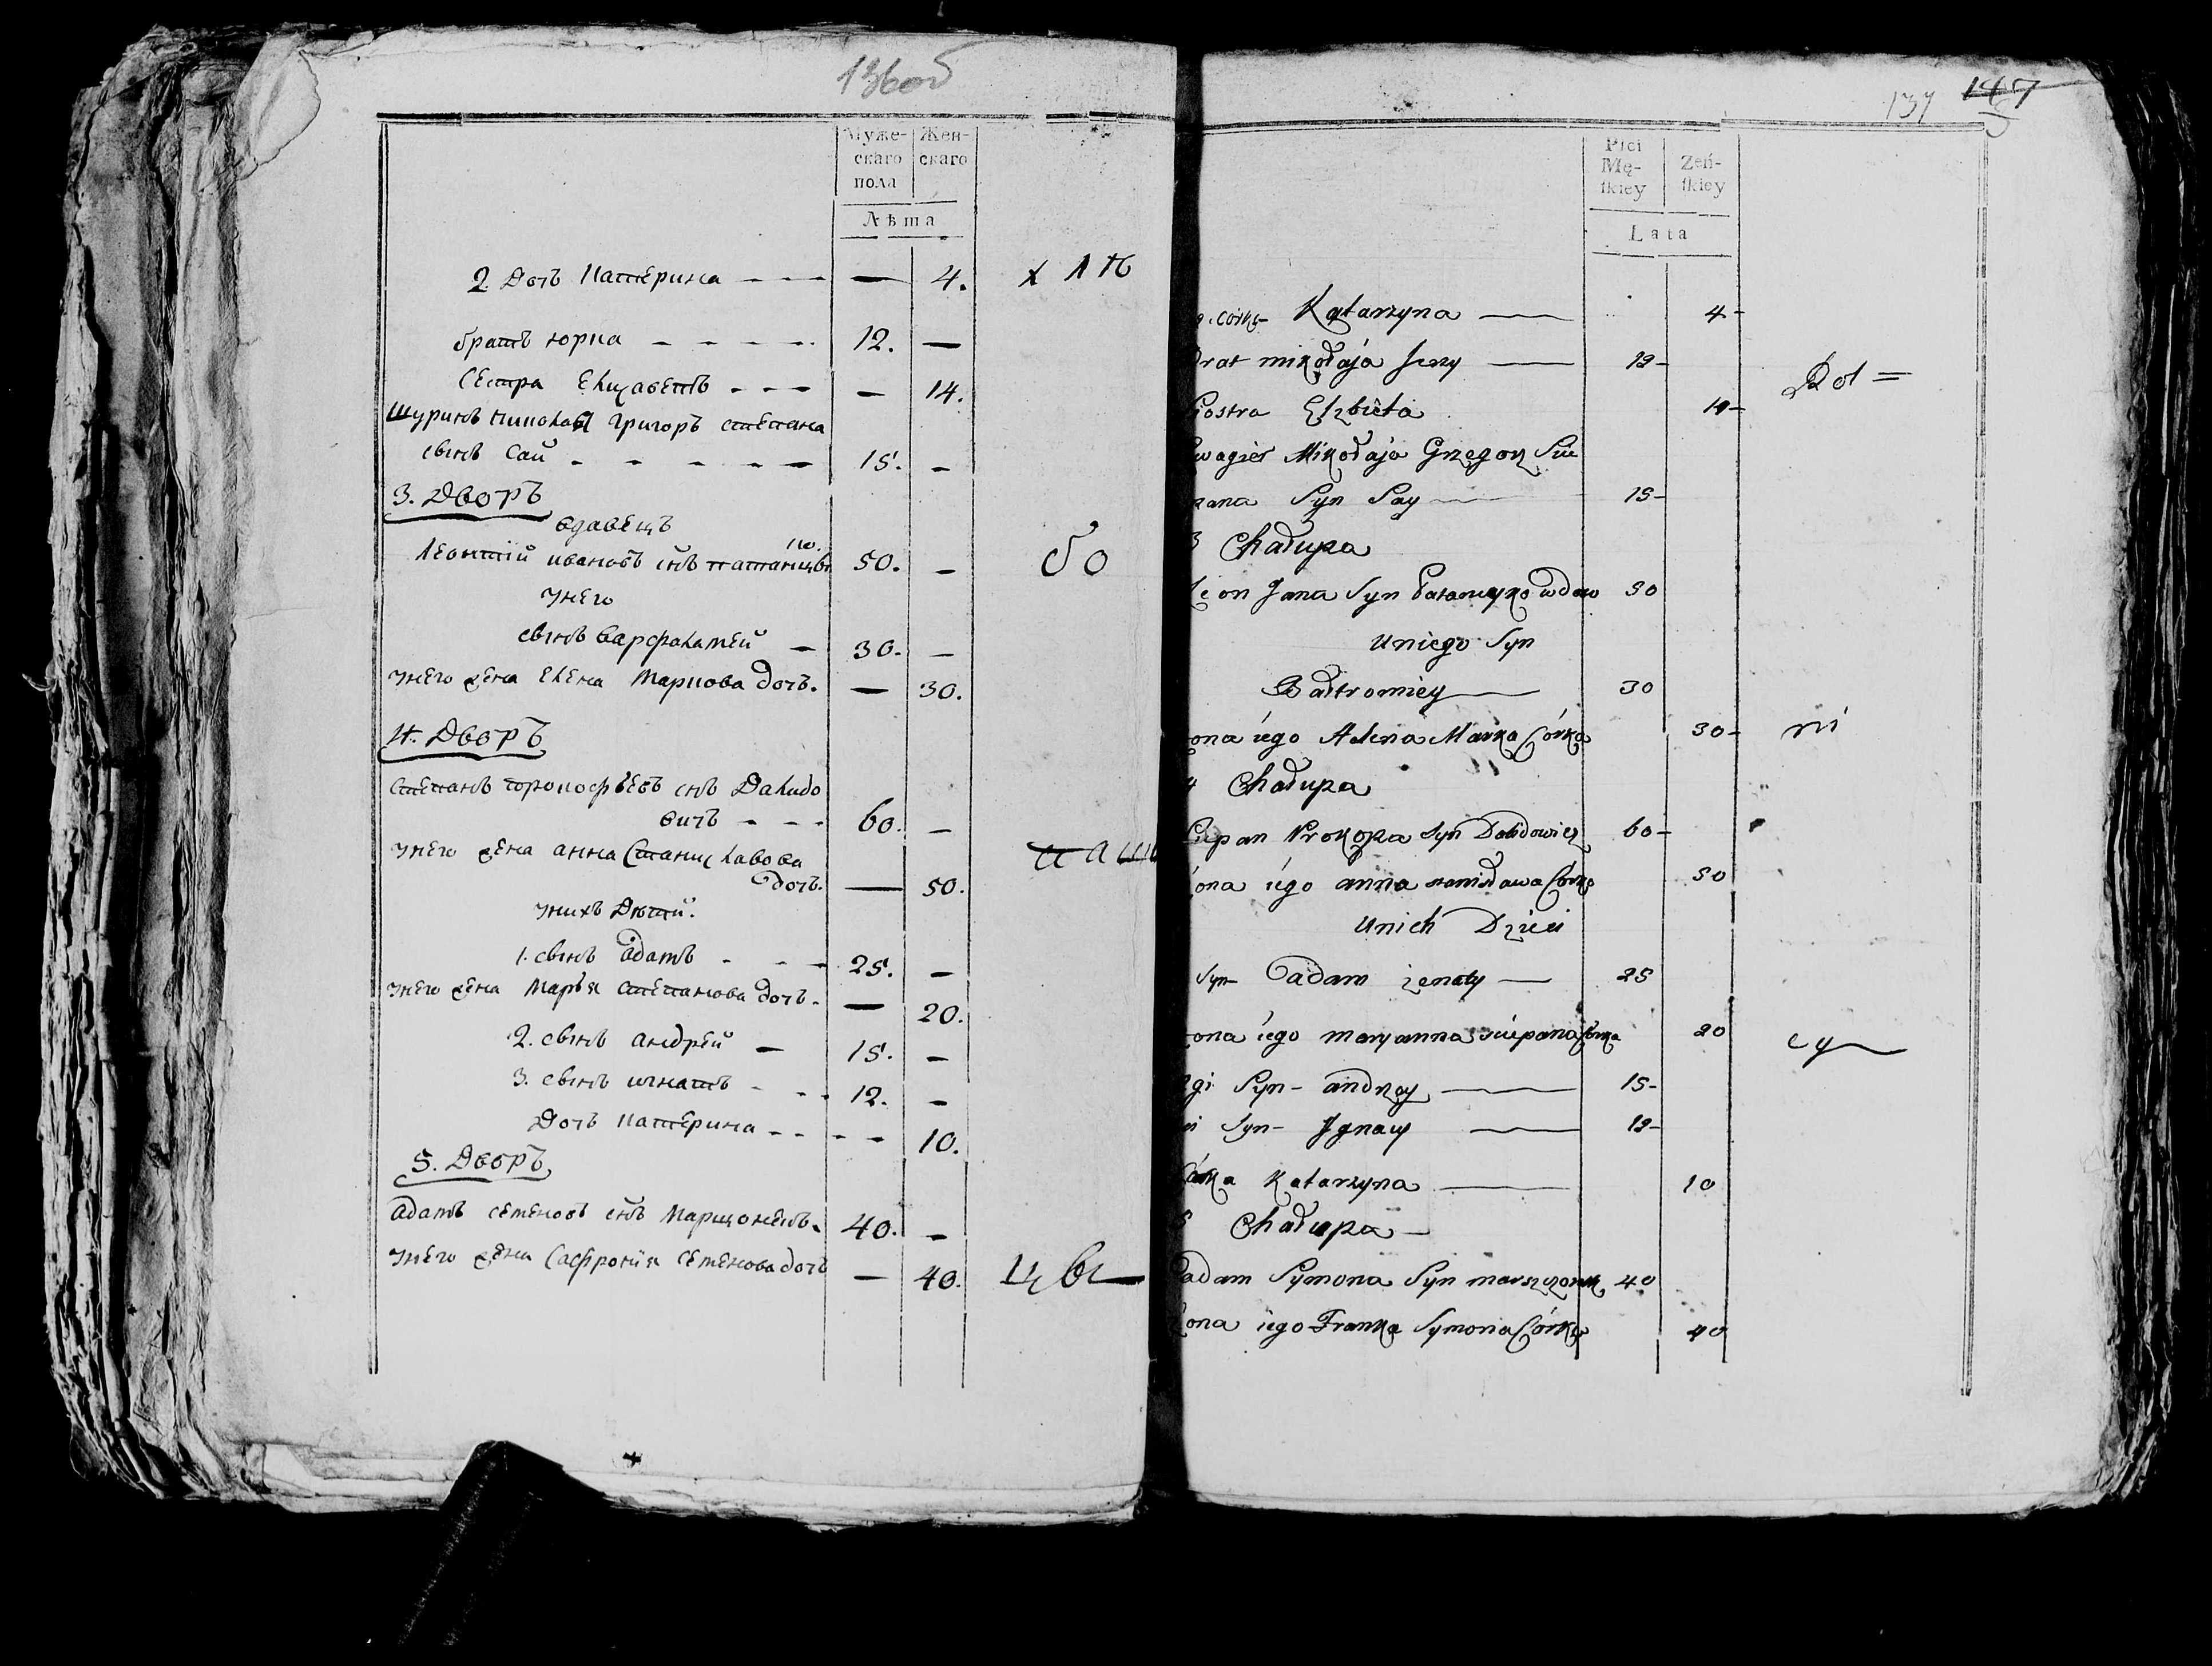 136об
Муже- Жен-
скаго скаго
пола
Лѣта
2 Дочь Катерина — 4.
братъ юрка 12. —
Сестра Елизаветъ — 14.
Шуринъ Миколая Григоръ степана
сынъ Сай 15. —
3. Дворъ
вдавецъ
Леонтій ивановъ снъ 50. —
унего
сынъ Варфаламей 30. —
унего жена Елена Маркова дочь. — 30.
4. Дворъ
Степанъ прокофьевъ снъ Далидо
вичъ 60. —
унего жена анна Станиславова
дочь. — 50.
унихъ Дѣтей.
1. сынъ адамъ 25. —
унего жена Марья степанова дочь. — 20.
2. сынъ андрей 15. —
3. сынъ игнатъ 12. —
Дочь Катерина 10.
5. Дворъ
адамъ семеновъ снъ Марщонекъ. 40. —
унего жена Сафронія семенова дочь — 40.
хлп
бо
цвы
137 147
Płci
Mę- Żeń-
ſkiey ſkiey
Lata
córka Katarzyna 4
brat mikołaja Jerzy 12
Siostra Elzbieta 14
Szwagier Mikołaja Grzegorz Scie
pana Syn Say 15
3 Chałupa
Leon Jana Syn Patamyko wdow 50
uniego Syn
Bałtromiey 30
żona iego Alena Marka Córka 30
4 Chałupa
Sciepan Prokopa Syn Dalidowicz 60
żona iego anna stanisława Córka 50
unich Dzieci
Syn adam żenaty 25
żona iego maryanna sciepana Córka 20
Syn andrzey 15
Syn Jgnacy 12
Córka Katarzyna 10
5 Chałupa
adam Symona Syn marszczonek 40
żona iego Franka Symona Córka 40
Dot
ni
cy